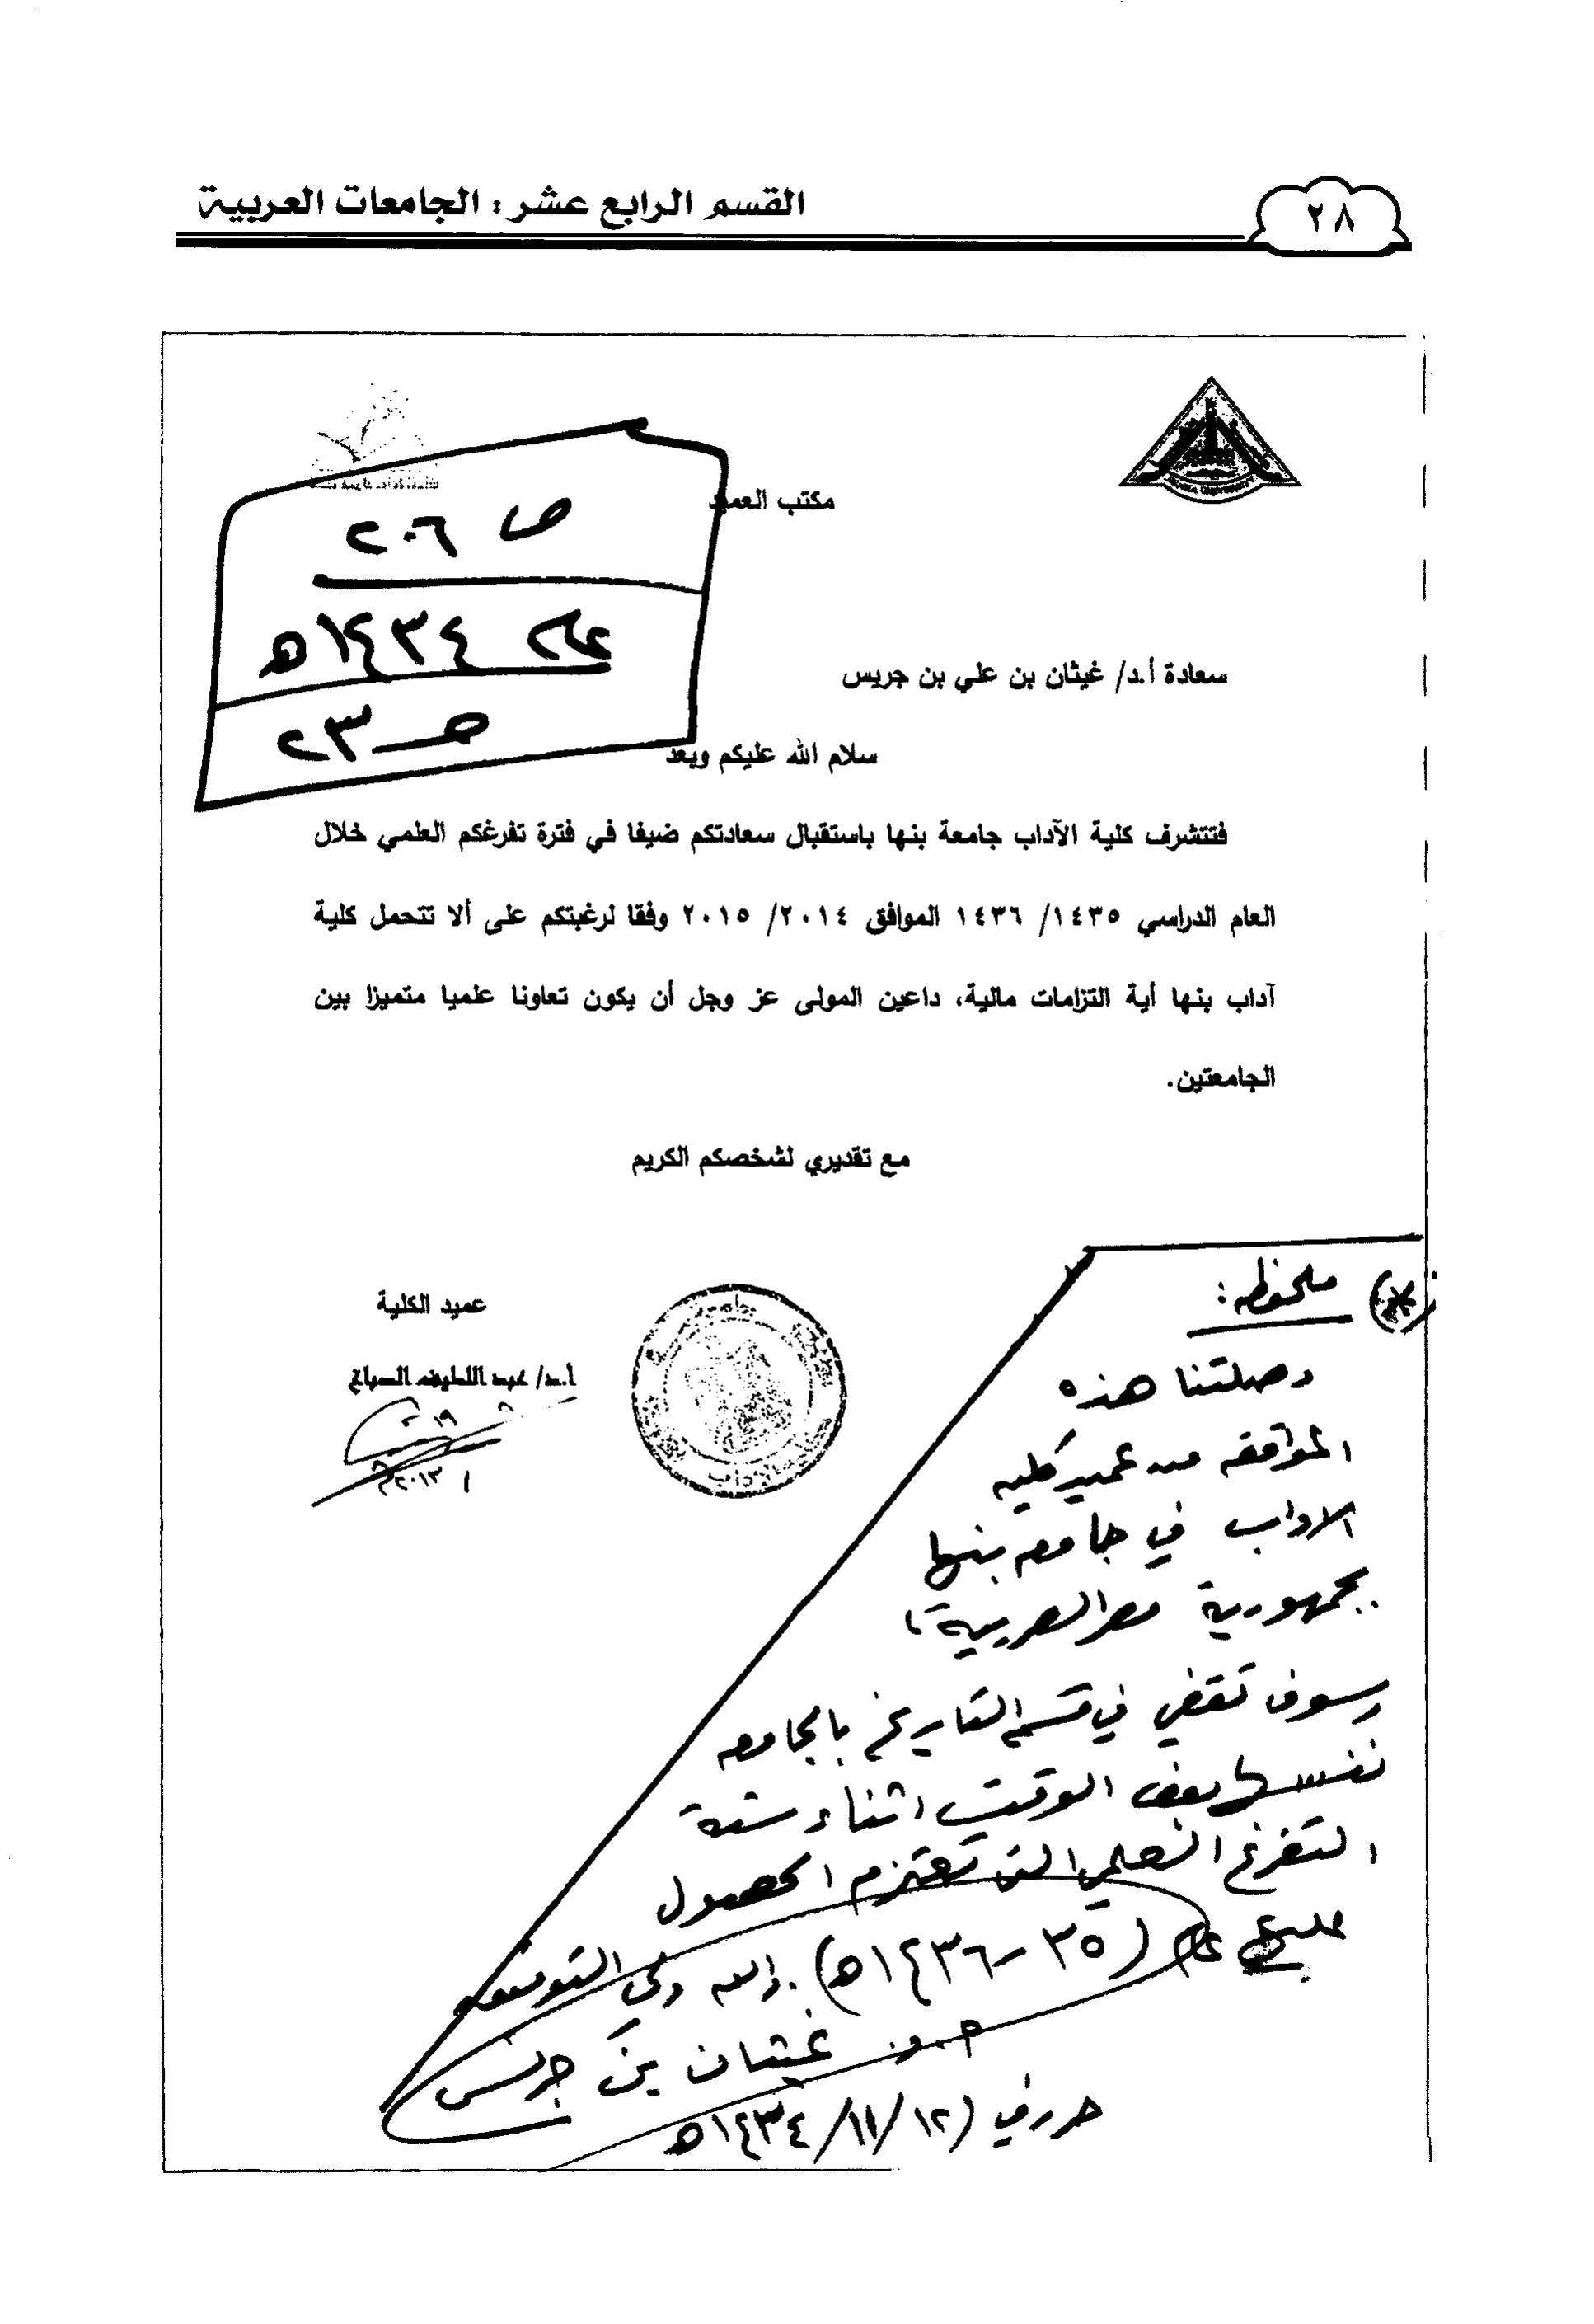 ٢٨
القسم الرابع عشر: الجامعات العربية
مكتب العميد
ص ٢٠٦
عام ١٤٣٤هـ
ص ٢٣
سعادة أ.د/ غيثان بن علي بن جريس
سلام الله عليكم وبعد
فتتشرف كلية الآداب جامعة بنها باستقبال سعادتكم ضيفا في فترة تفرغكم العلمي خلال
العام الدراسي ١٤٣٥/ ١٤٣٦ الموافق ٢٠١٤/ ٢٠١٥ وفقا لرغبتكم على ألا تتحمل كلية
آداب بنها أية التزامات مالية، داعين المولى عز وجل أن يكون تعاونا علميا متميزا بين
الجامعتين.
مع تقديري لشخصكم الكريم
عميد الكلية
أ.د/ عبد اللطيف الصباغ
(*) ملحوظه:
وصلتنا هذه
الموافقه من عميد كليه
الاداب في جامعه بنها
بجمهورية مصر العربية،
وسوف نقضي في قسم التاريخ بالجامعه
نفسها بعض الوقت اثناء سنة
التفرغ العلمي التي نعتزم الحصول
عليها عام (٣٥-١٤٣٦هـ). والله ولي التوفيق
أ.د. غيثان بن جريس
حرر في (١٢/١١/١٤٣٤هـ